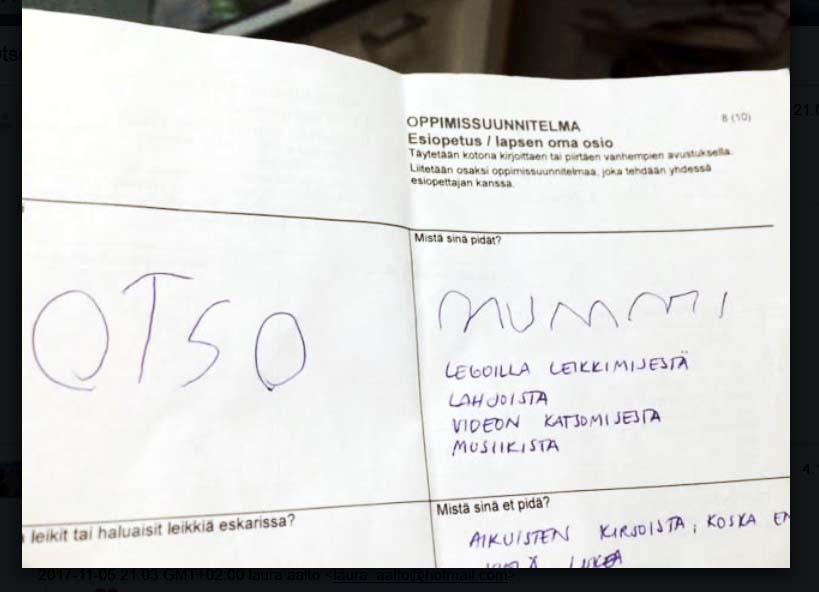 OPPIMISSUUNNITELMA
8 (10)
Esiopetus / lapsen oma osio
Täytetään kotona kirjoittaen tai piirtäen vanhempien avustuksella.
Liitetään osaksi oppimissuunnitelmaa, joka tehdään yhdessä
esiopettajan kanssa.
OTSO
Mistä sinä pidät?
MUMMI
LEGOILLA LEIKKIMISESTÄ
LAHJOISTA
VIDEON KATSOMISESTA
MUSIIKISTA
leikit tai haluaisit leikkiä eskarissa?
Mistä sinä et pidä?
AIKUISTEN KIRJOISTA, KOSKA EN
LUKEA
2017-11-05 21:03 GMT+02:00 laura aalto <laura_aalto@hotmail.com>